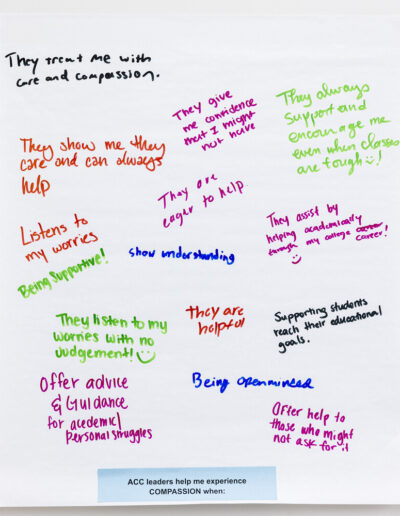 They treat me with
care and compassion.
They give
me confidence
that I might
not have
They always
support and
encourage me
even when classes
are tough!
They show me they
care and can always
help
They are
eager to help
Listens to
my worries
They assist by
helping academically
through my college career
career!
Being Supportive!
show understanding
They listen to my
worries with no
Judgement!
they are
helpful
Supporting students
reach their educational
goals.
Offer advice
& Guidance
for acedemic/
personal struggles
Being openminded
Offer help to
those who might
not ask for it
ACC leaders help me experience
COMPASSION when: